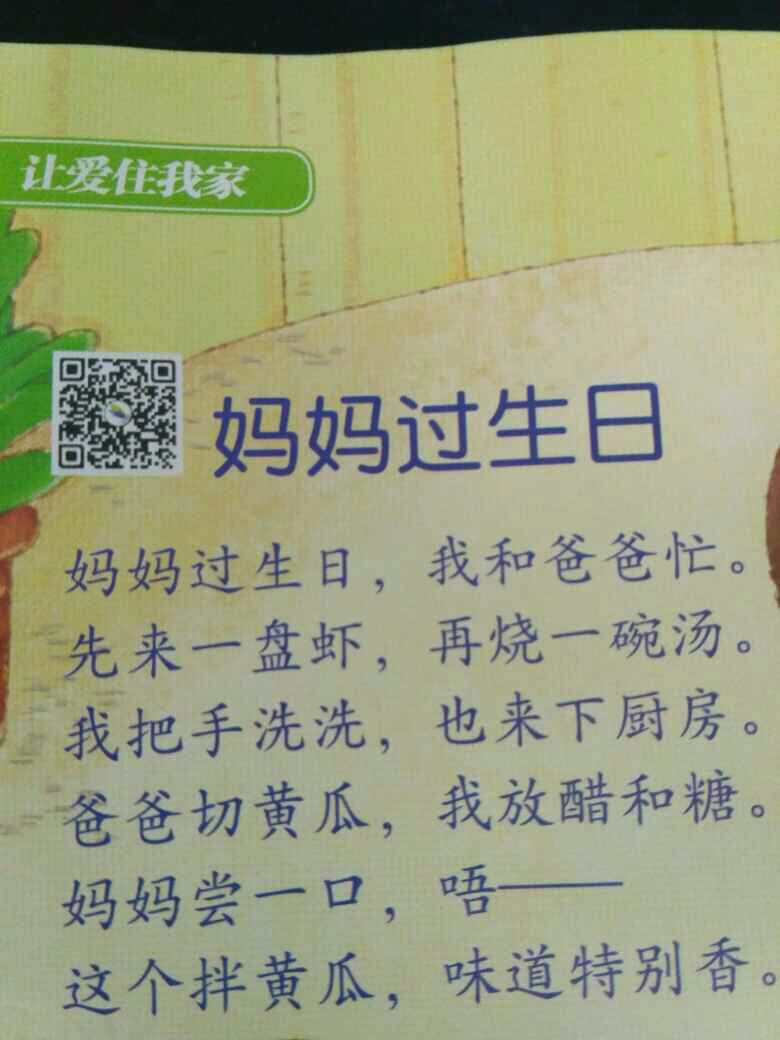 让爱住我家
妈妈过生日
妈妈过生日，我和爸爸忙。
先来一盘虾，再烧一碗汤。
我把手洗洗，也来下厨房。
爸爸切黄瓜，我放醋和糖。
妈妈尝一口，唔——
这个拌黄瓜，味道特别香。